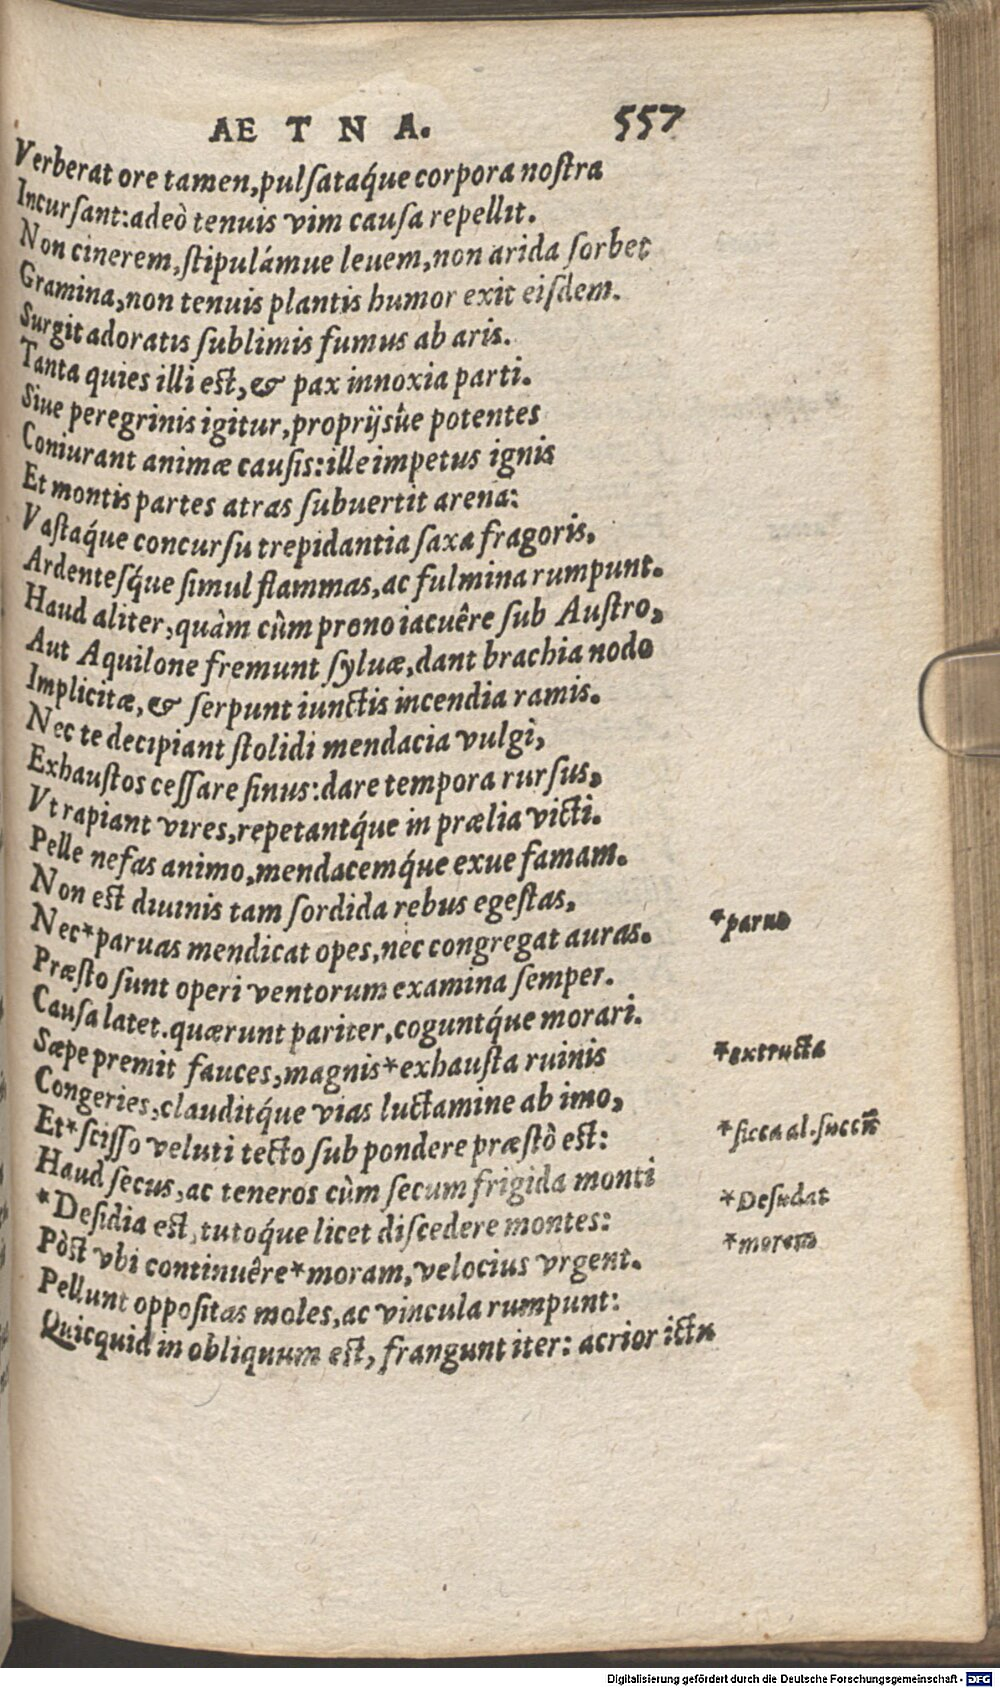 AETNA. 557
Verberat ore tamen, pulsataq́ue corpora nostra
Incursant: adeò tenuis vim causa repellit.
Non cinerem, stipulámue leuem, non arida sorbet
Gramina, non tenuis plantis humor exit eisdem.
Surgit adoratis sublimis fumus ab aris.
Tanta quies illi est, & pax innoxia parti.
Siue peregrinis igitur, proprijsúe potentes
Coniurant animæ causis: ille impetus ignis
Et montis partes atras subuertit arena:
Vastaq́ue concursu trepidantia saxa fragoris,
Ardentesq́ue simul flammas, ac fulmina rumpunt.
Haud aliter, quàm cùm prono iacuêre sub Austro,
Aut Aquilone fremunt syluæ, dant brachia nodo
Implicitæ, & serpunt iunctis incendia ramis.
Nec te decipiant stolidi mendacia vulgi,
Exhaustos cessare sinus: dare tempora rursus,
Vt rapiant vires, repetantq́ue in prælia victi.
Pelle nefas animo, mendacemq́ue exue famam.
Non est diuinis tam sordida rebus egestas,
Nec *paruas mendicat opes, nec congregat auras. *paruo
Præsto sunt operi ventorum examina semper.
Causa latet. quærunt pariter, coguntq́ue morari.
Sæpe premit fauces, magnis *exhausta ruinis *extructa
Congeries, clauditq́ue vias luctamine ab imo,
Et *scisso veluti tecto sub pondere præstò est: *sicca al. succū
Haud secus, ac teneros cùm secum frigida monti
*Desidia est, tutoq́ue licet discedere montes: *Desudat
Pòst vbi continuêre *moram, velocius vrgent. *morem
Pellunt oppositas moles, ac vincula rumpunt:
Quicquid in obliquum est, frangunt iter: acrior ictu
Digitalisierung gefördert durch die Deutsche Forschungsgemeinschaft - DFG